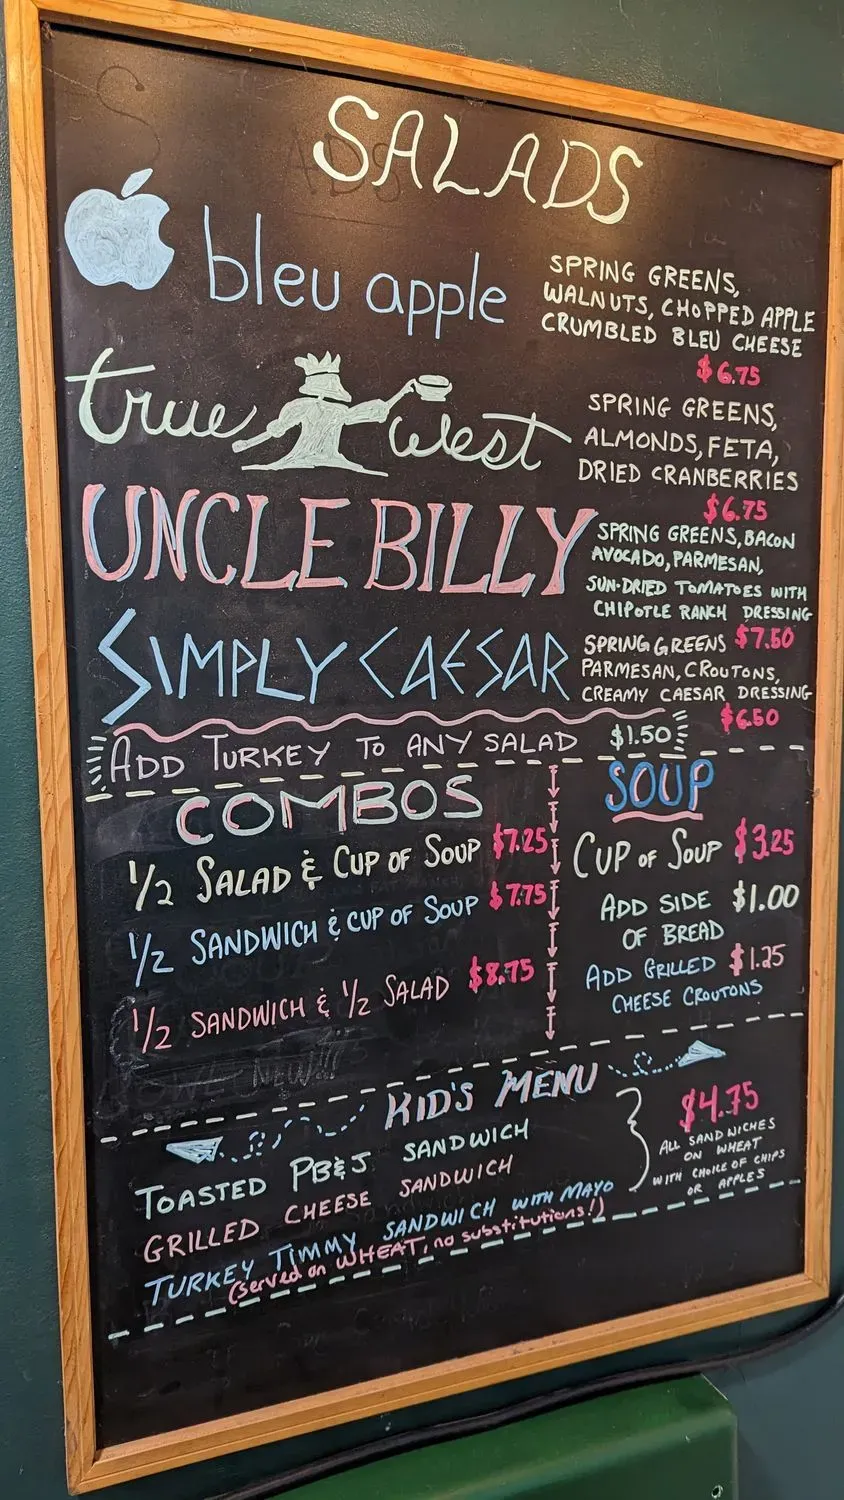 SALADS
bleu apple
SPRING GREENS,
WALNUTS, CHOPPED APPLE
CRUMBLED BLEU CHEESE
$6.75
true west
SPRING GREENS,
ALMONDS, FETA,
DRIED CRANBERRIES
$6.75
UNCLE BILLY
SPRING GREENS, BACON
AVOCADO, PARMESAN,
SUN-DRIED TOMATOES WITH
CHIPOTLE RANCH DRESSING
$7.50
SIMPLY CAESAR
SPRING GREENS
PARMESAN, CROUTONS,
CREAMY CAESAR DRESSING
$6.50
ADD TURKEY TO ANY SALAD $1.50
COMBOS
1/2 SALAD & CUP OF SOUP $7.25
1/2 SANDWICH & CUP OF SOUP $7.75
1/2 SANDWICH & 1/2 SALAD $8.75
SOUP
CUP OF SOUP $3.25
ADD SIDE $1.00
OF BREAD
ADD GRILLED $1.25
CHEESE CROUTONS
KID'S MENU
TOASTED PB&J SANDWICH
GRILLED CHEESE SANDWICH
TURKEY TIMMY SANDWICH WITH MAYO
(served on WHEAT, no substitutions!)
$4.75
ALL SANDWICHES
ON WHEAT
WITH CHOICE OF CHIPS
OR APPLES